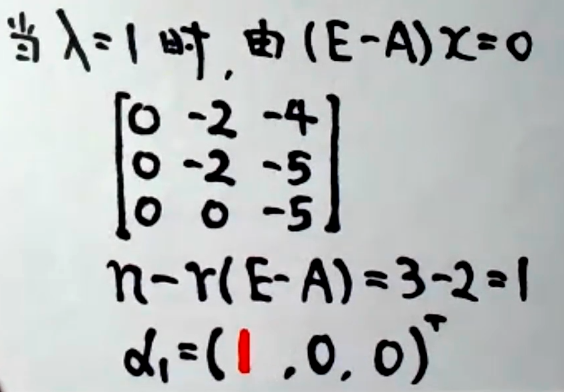 当λ=1时,由(E-A)x=0
[0 -2 -4
0 -2 -5
0 0 -5]
n-r(E-A)=3-2=1
α₁=(1,0,0)ᵀ